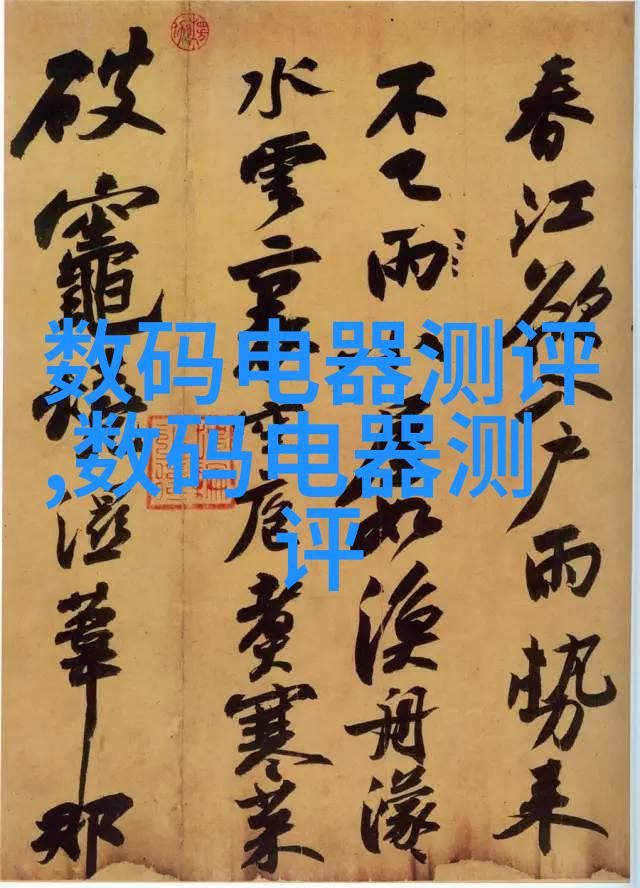 春江欲入戶雨勢來
不已雨小屋如漁舟濛
水雲裏空庖煮寒菜
破竈燒濕葦那
数码电器测评
,数码电器测
评